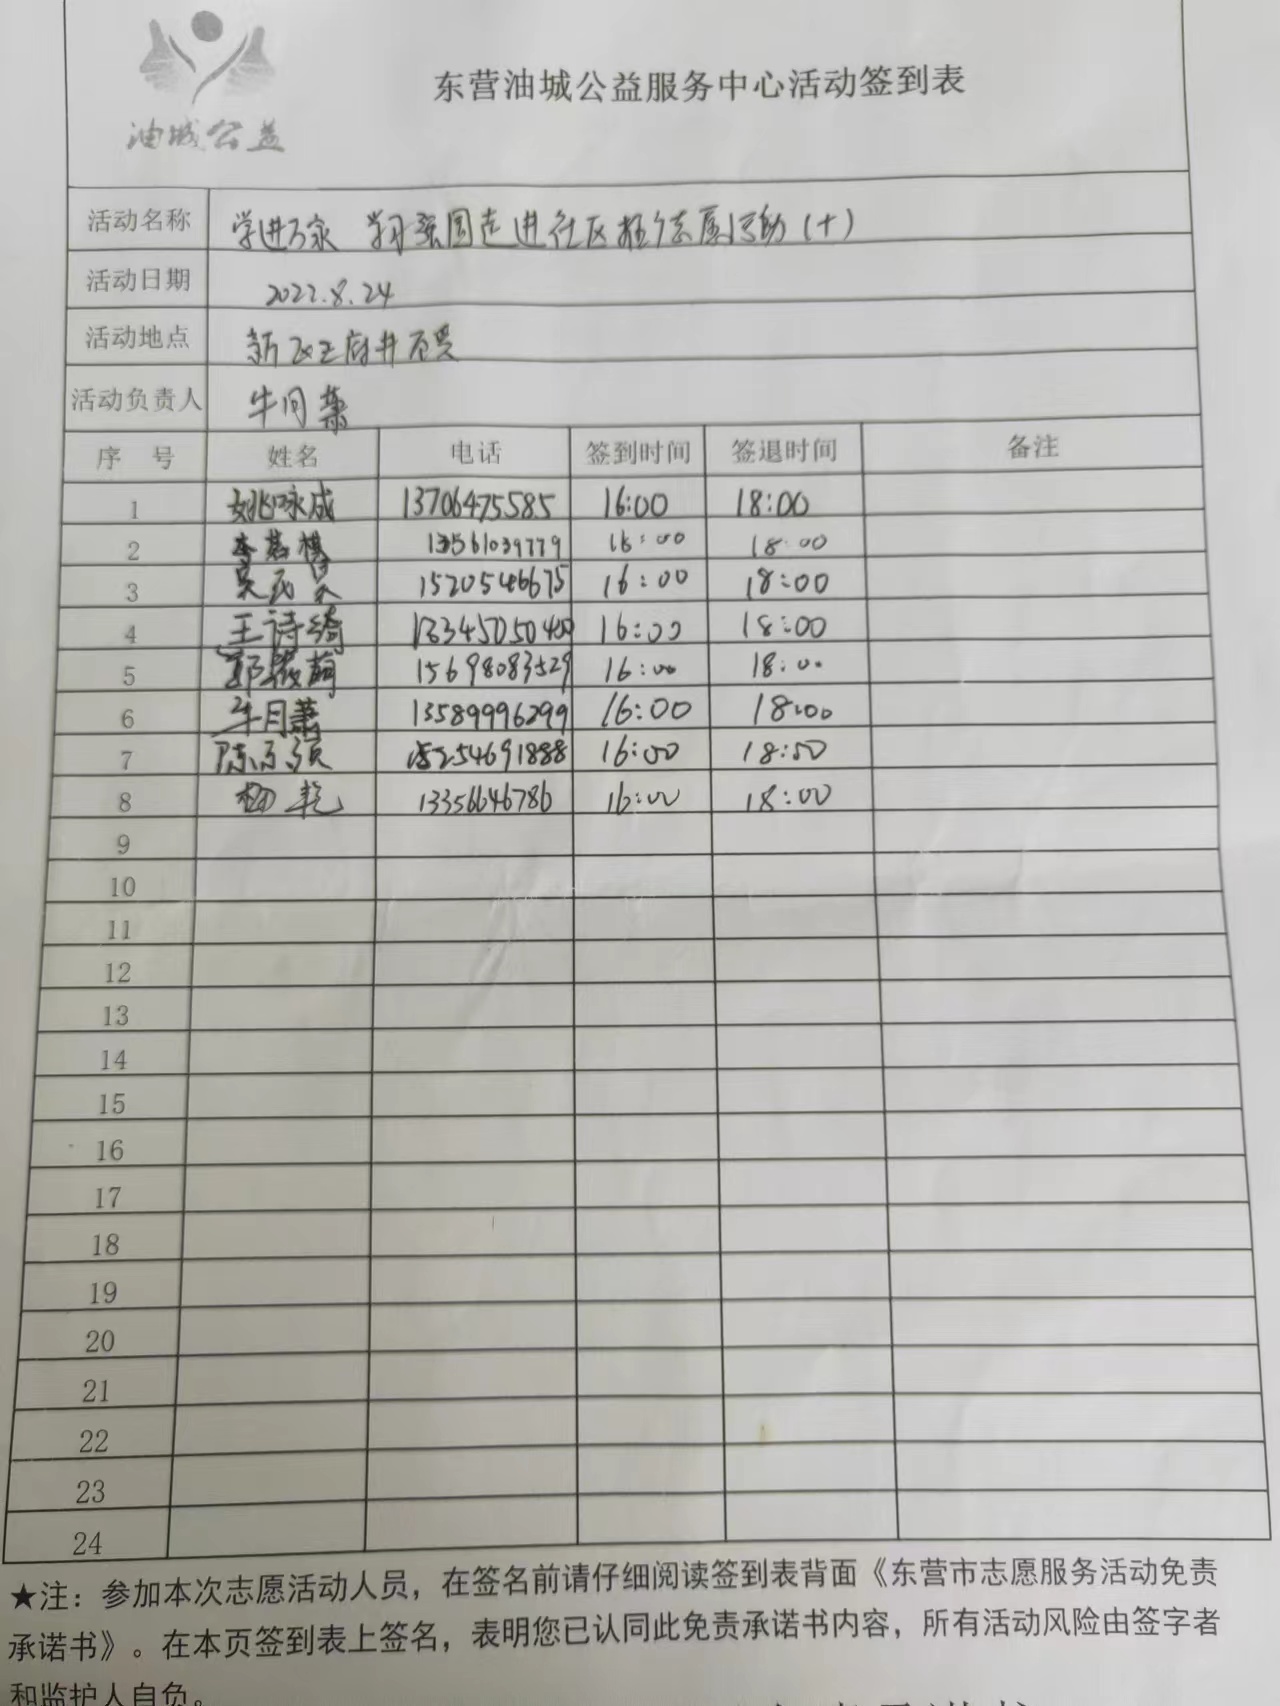 油城公益
东营油城公益服务中心活动签到表
活动名称 学进万家 学习强国走进社区推广志愿活动(十)
活动日期 2022.8.24
活动地点 新区王府井百货
活动负责人 牛月萧
序 号 姓名 电话 签到时间 签退时间 备注
1 姚咏成 13706475585 16:00 18:00
2 13561039779 16:00 18:00
3 15205466675 16:00 18:00
4 王诗绮 16:00 18:00
5 郭薇萌 15698083529 16:00 18:00
6 牛月萧 13589996299 16:00 18:00
7 15254691888 16:00 18:50
8 杨乾 13356646786 16:00 18:00
9
10
11
12
13
14
15
16
17
18
19
20
21
22
23
24
★注：参加本次志愿活动人员，在签名前请仔细阅读签到表背面《东营市志愿服务活动免责
承诺书》。在本页签到表上签名，表明您已认同此免责承诺书内容，所有活动风险由签字者
和监护人自负。